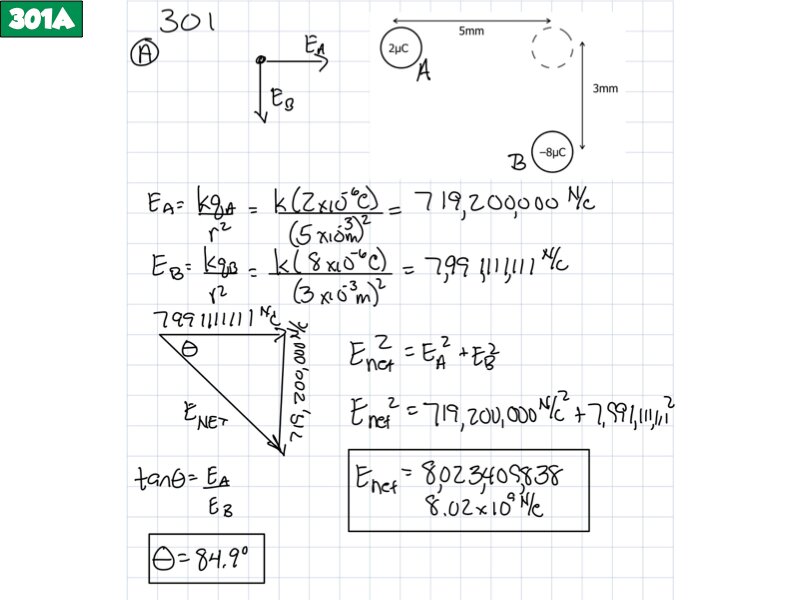 301A
301
A
E_A
E_B
5mm
2μC
A
3mm
B
-8μC
E_A = kq_A / r² = k(2×10⁻⁶C) / (5×10⁻³m)² = 719,200,000 N/C
E_B = kq_B / r² = k(8×10⁻⁶C) / (3×10⁻³m)² = 7,991,111,111 N/C
7991111111 N/C
θ
719,200,000 N/C
E_NET
E_net² = E_A² + E_B²
E_net² = 719,200,000 N/C² + 7,991,111,111²
tanθ = E_A / E_B
E_net = 8,023,409,838
8.02×10⁹ N/C
θ = 84.9°